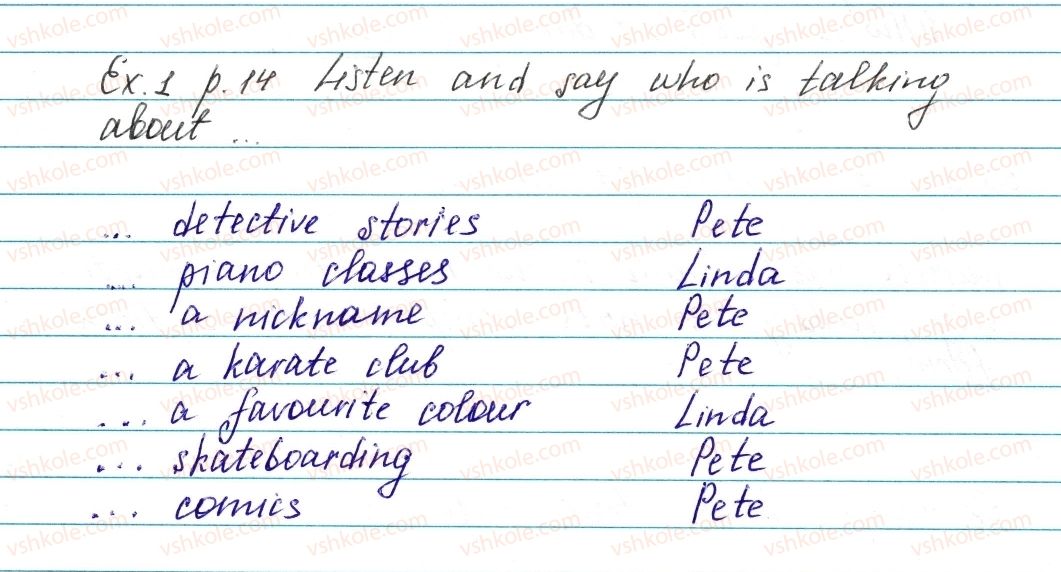 Ex. 1 p. 14 Listen and say who is talking
about ...
... detective stories Pete
... piano classes Linda
... a nickname Pete
... a karate club Pete
... a favourite colour Linda
... skateboarding Pete
... comics Pete